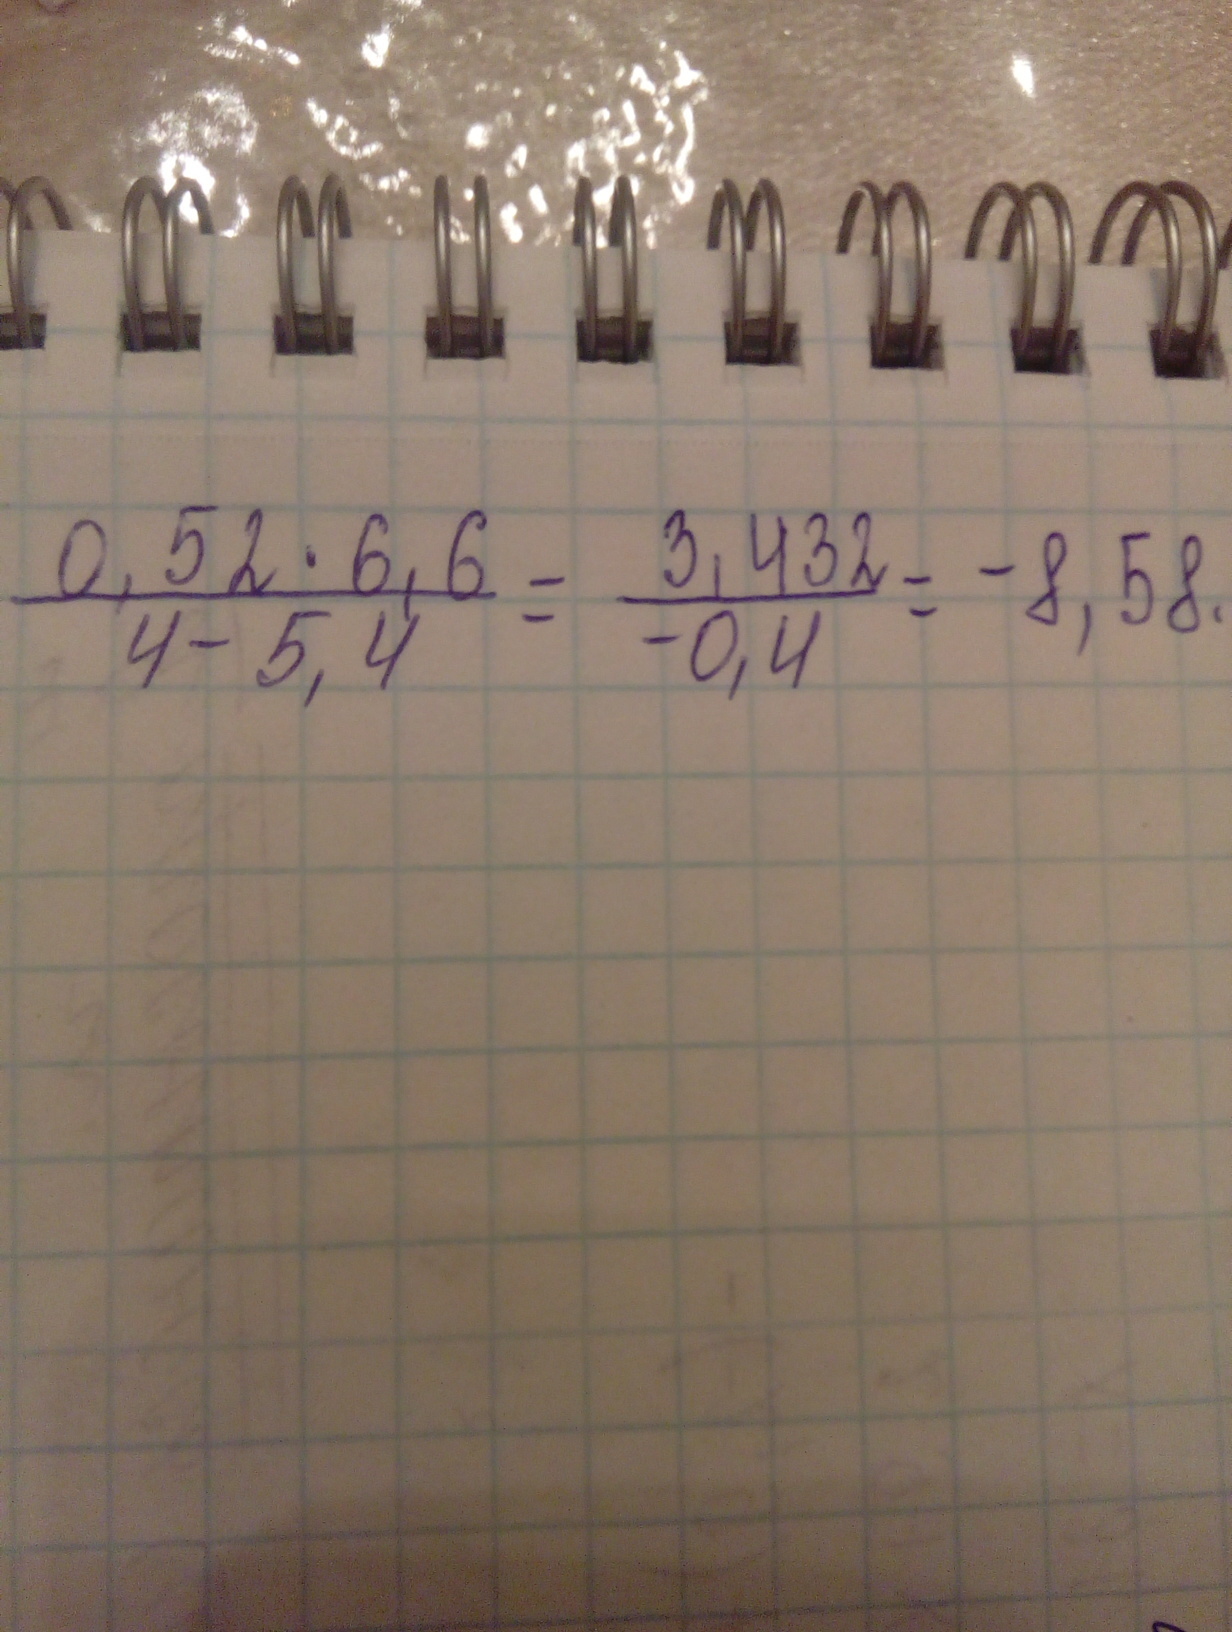 0,52·6,6/4-5,4 = 3,432/-0,4 = -8,58.